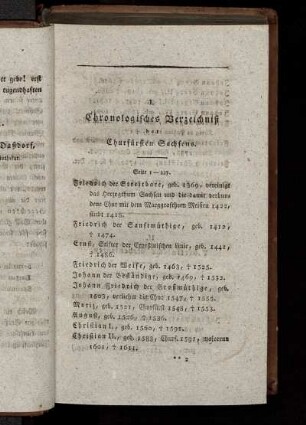 er gebe! erst
tugendhaften
Daßdorf,
I.
Chronologisches Verzeichniß
der
Churfürsten Sachsens.
Seite 1—227.
Friedrich der Streitbare, geb. 1369, vereinigt
das Herzogthum Sachsen und die damit verbun
dene Chur mit dem Marggrafthum Meißen 1423,
stirbt 1428.
Friedrich der Sanftmüthige, geb. 1412,
† 1474.
Ernst, Stifter der Ernestinischen Linie, geb. 1441,
† 1486.
Friedrich der Weise, geb. 1463, † 1525.
Johann der Beständige, geb. 1469, † 1532.
Johann Friedrich der Großmüthige, geb.
1503, verliehrt die Chur 1547, † 1553.
Moritz, geb. 1521, Churfürst 1548, † 1553.
August, geb. 1526, † 1586.
Christian I., geb. 1560, † 1591.
Christian II., geb. 1583, Churf. 1591, majorenn
1601, † 1611.
** 2